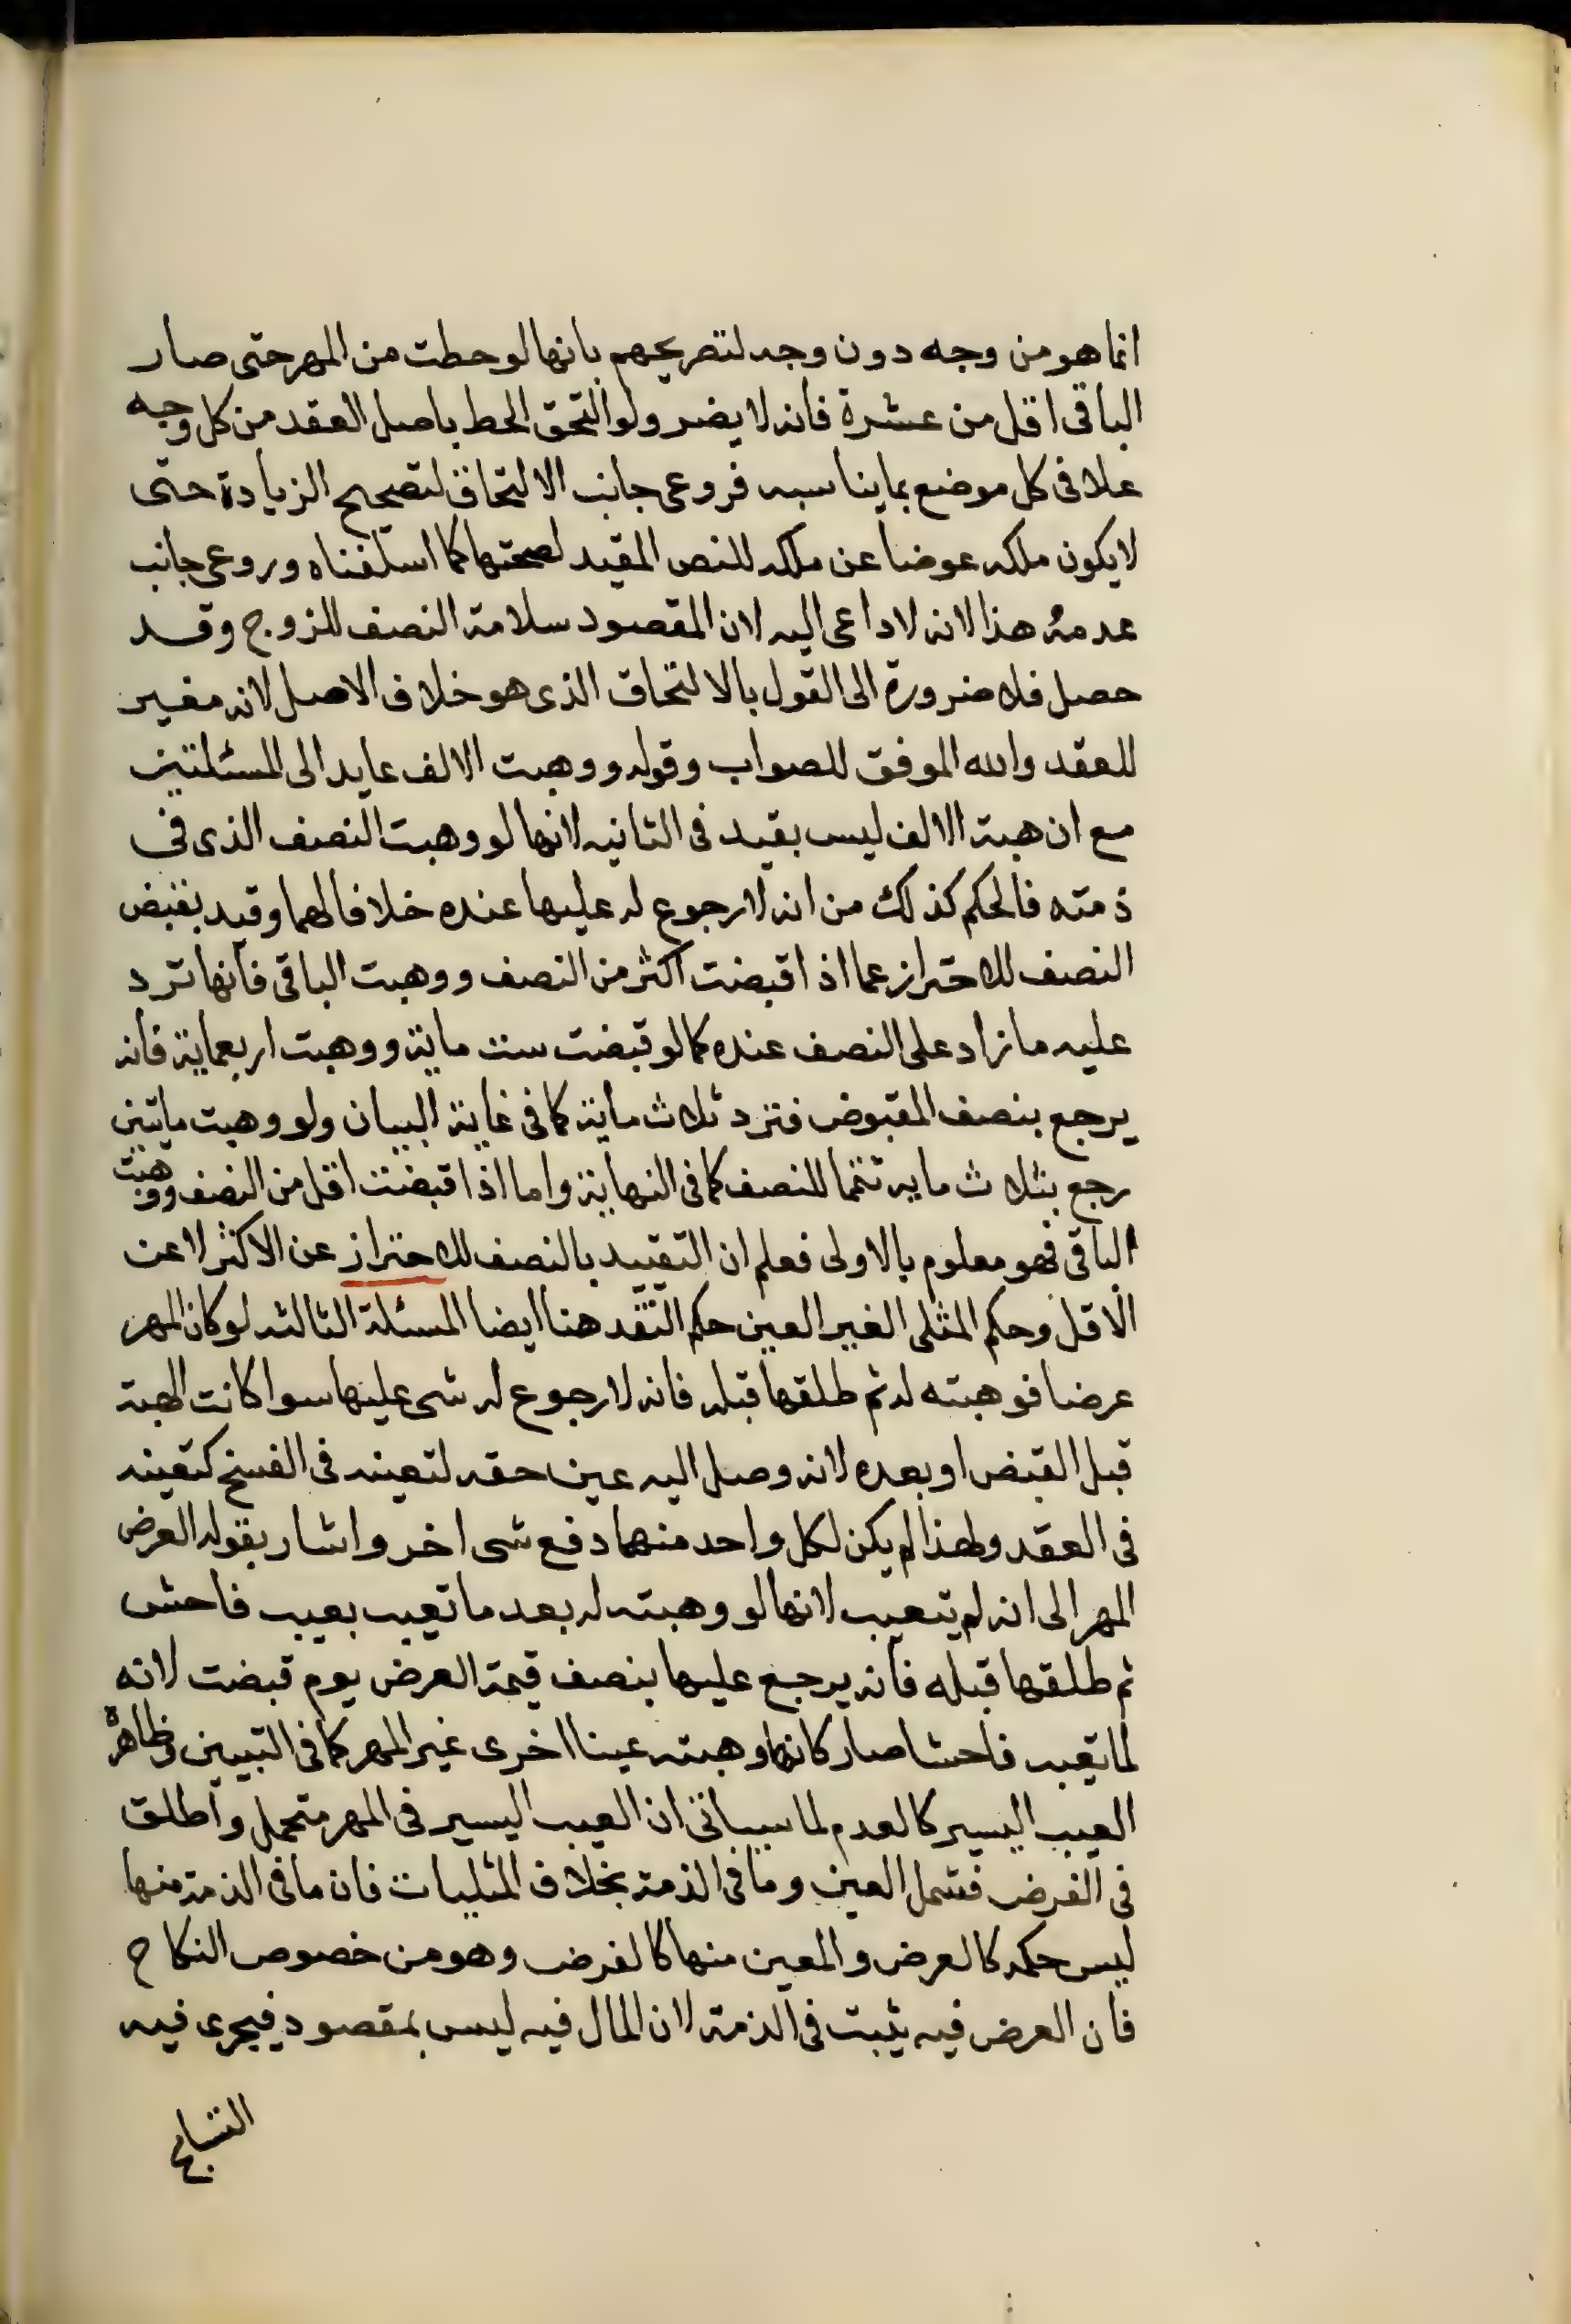 انما هو من وجه دون وجه لتصريحهم بانها لو حطت من المهر حتى صار
الباقى اقل من عشرة فانه لا يضر ولو التحق الحط باصل العقد من كل وجه
علا فى كل موضع بما يناسبه فروعى جانب الالتحاق لتصحيح الزيادة حتى
لا يكون ملكه عوضا عن ملكه للنص المقيد لصحتها كما اسلفناه وروعى جانب
عدمه هذا لانه لا داعى اليه لان المقصود سلامة النصف للزوج وقد
حصل فلا ضرورة الى القول بالالتحاق الذى هو خلاف الاصل لانه مغير
للعقد والله الموفق للصواب وقوله ووهبت الالف عايد الى المسئلتين
مع ان هبة الالف ليس بقيد فى الثانيه لانها لو وهبت النصف الذى فى
ذمته فالحكم كذلك من انه لا رجوع له عليها عنده خلافا لهما وقيد بقبض
النصف للاحتراز عما اذا قبضت اكثر من النصف ووهبت الباقى فانها ترد
عليه ما زاد على النصف عنده كما لو قبضت ست ماية ووهبت اربعماية فانه
يرجع بنصف المقبوض فترد ثلاث ماية كما فى غاية البيان ولو وهبت مايتين
رجع بثلاث مايه تتمما للنصف كما فى النهاية واما اذا قبضت اقل من النصف ووهبت
الباقى فهو معلوم بالاولى فعلم ان التقييد بالنصف للاحتراز عن الاكثر لا عن
الاقل وحكم المثلى الغير العين حكم النقد هنا ايضا المسئلة الثالثه لو كان المهر
عرضا فوهبته له ثم طلقها قبله فانه لا رجوع له شى عليها سوا كانت الهبة
قبل القبض او بعده لانه وصل اليه عين حقه لتعينه فى الفسخ كتعينه
فى العقد ولهذا لم يكن لكل واحد منهما دفع شى اخر واشار بقوله العرض
المهر الى انه لم يتعيب لانها لو وهبته له بعد ما تعيب بعيب فاحش
ثم طلقها قبله فانه يرجع عليها بنصف قيمة العرض يوم قبضت لانه
لما تعيب فاحشا صار كانها وهبته عينا اخرى غير المهر كما فى التبيين وظاهره
العيب اليسير كالعدم لما سياتى ان العيب اليسير فى المهر متحمل واطلق
فى الفرض فشمل العين وما فى الذمة بخلاف المثليات فان ما فى الذمة منها
ليس حكمه كالعرض والمعين منها كالفرض وهو من خصوص النكاح
فان العرض فيه يثبت فى الذمة لان المال فيه ليس بمقصود فيجرى فيه
التسامح